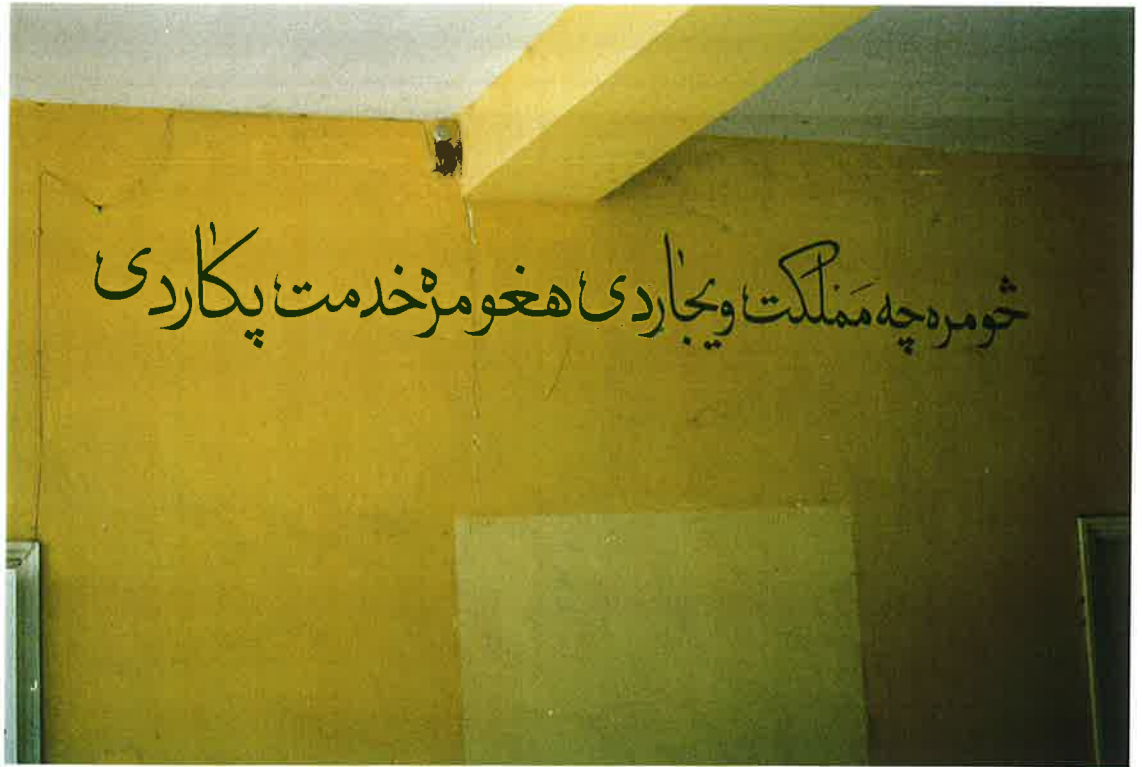 څومره چه مَملکت ویجاړ دی هغومره خدمت پکار دی